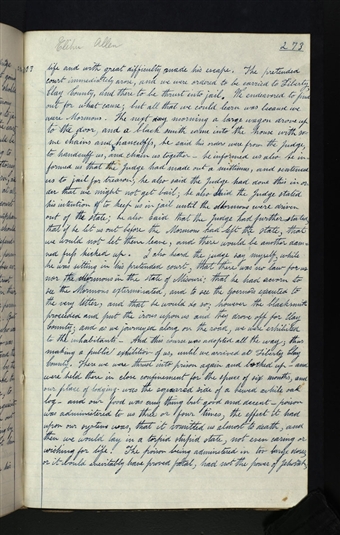 Ether Allen
273
life and with great difficulty made his escape. The pretended
court immediately arose, and we were ordered to be carried to Liberty,
Clay County, and there to be thrust into jail. We endeavored to find
out for what cause; but all that we could learn was because we
were Mormons. The next day morning a large wagon drove up
to the door, and a black smith came into the house with so-
me chains and handcuffs, he said his order was from the Judge,
to handcuff us, and chain us together - he informed us also he in-
formed us that the Judge had made out a mittimus, and sentenced
us to jail for treason; he also said the Judge had done this in or-
der that we might not get bail; he also said the Judge stated
his intention to keep us in jail until the Mormons were driven
out of the state; he also said that the Judge had further stated
that if he let us out before the Mormons had left the state, that
we would not let them leave, and there would be another dam-
ned fuss kicked up. I also heard the Judge say myself, while
he was sitting in his pretended court, that there was no law for us
nor the Mormons in the state of Missouri; that he had sworn to
see the Mormons exterminated, and to see the governor executed to
the very letter; and that he would do so; however the blacksmith
proceeded and put the irons upon us and they drove off for Clay
County; and as we journeyed along on the road, we were exhibited
to the inhabitants - And this course was adopted all the way; thus
making a public exhibition of us, until we arrived at Liberty Clay
County. There we were thrust into prison again and locked up - and
were held there in close confinement for the space of six months, and
our place of lodging was the squared side of a hewed white oak
log - and our food was any thing but good and decent - poison
was administered to us three or four times, the effect it had
upon our system was, that it vomited us almost to death, and
then we would lay in a torpid stupid state, not even caring or
wishing for life! The poison being administered in too large doses
or it would inevitably have proved fatal, had not the power of Jehovah